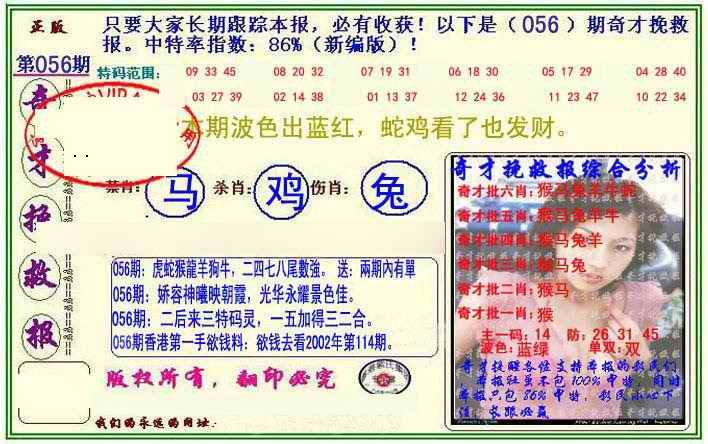 正版
只要大家长期跟踪本报，必有收获！以下是（056）期奇才挽救
报。中特率指数：86%（新编版）！
第056期
特码范围：
09 33 45 08 20 32 07 19 31 06 18 30 05 17 29 04 28 40
03 27 39 02 14 38 01 13 37 12 24 36 11 23 47 10 22 34
本期波色出蓝红，蛇鸡看了也发财。
奇
才
挽
救
报
禁肖：马 杀肖：鸡 伤肖：兔
056期：虎蛇猴龍羊狗牛，二四七八尾數強。 送：兩期內有單
056期：娇容神曦映朝霞，光华永耀景色佳。
056期：二后来三特码灵，一五加得三二合。
056期香港第一手欲钱料：欲钱去看2002年第114期。
版权所有，翻印必究
我们的永远的网址：
奇才挽救报综合分析
奇才批六肖：猴马兔羊牛蛇
奇才批五肖：猴马兔羊牛
奇才批四肖：猴马兔羊
奇才批三肖：猴马兔
奇才批二肖：猴马
奇才批一肖：猴
主一码：14 防：26 31 45
波色：蓝绿 单双：双
奇才挽救各位支持本报的彩民们
本报社虽不包100%中特，同时
本报只包86%中特，彩民小心下
注，长跟必赢